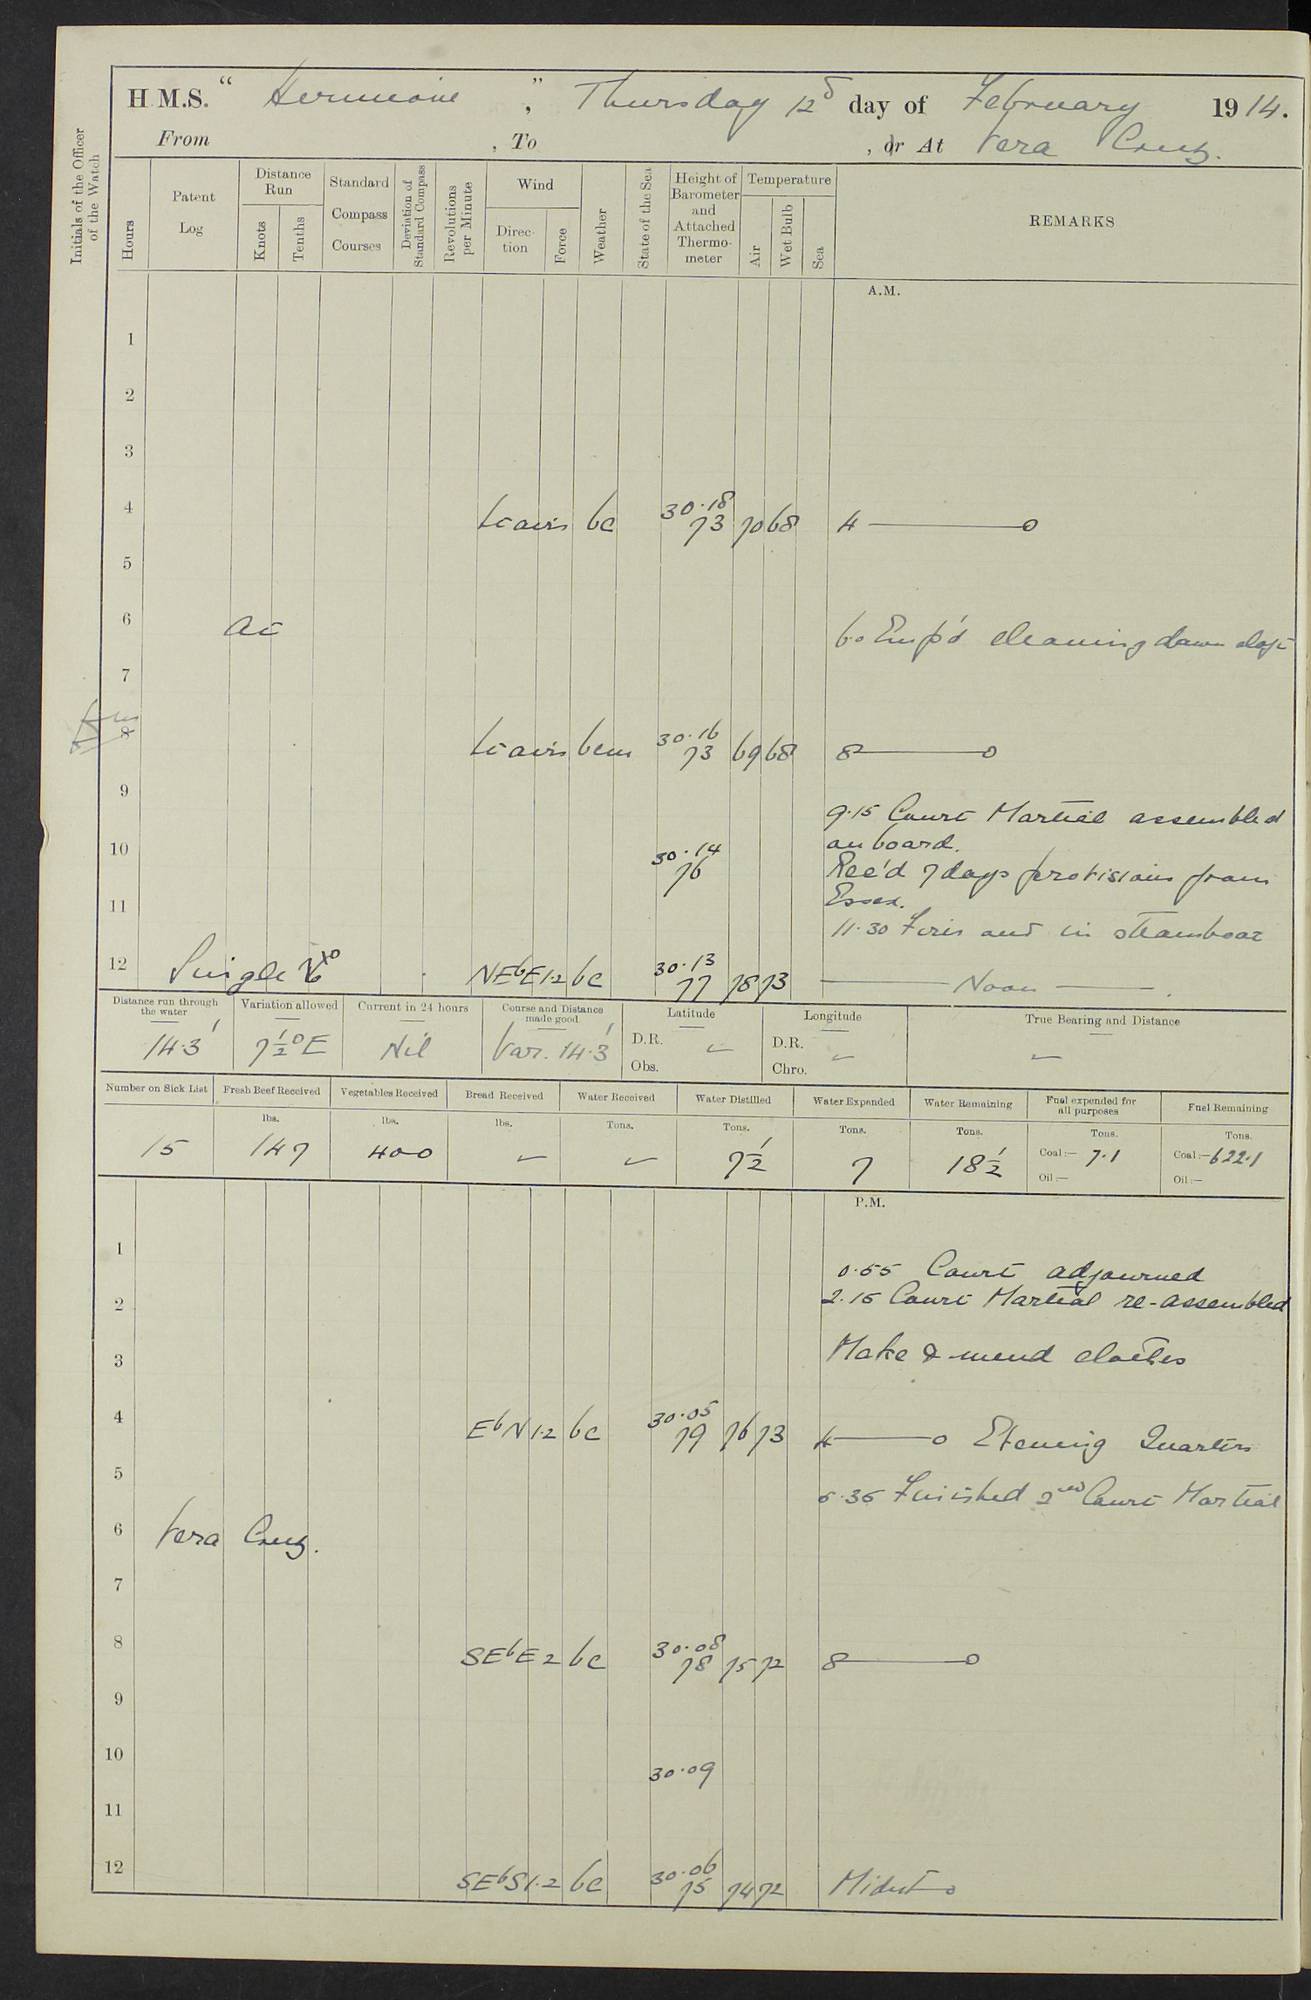 H.M.S. " Hermione ", Thursday 12th day of February 1914.
From , To , or At Vera Cruz.
Initials of the Officer of the Watch
Hours
Patent Log
Distance Run
Knots
Tenths
Standard Compass Courses
Deviation of Standard Compass
Revolutions per Minute
Wind
Direction
Force
Weather
State of the Sea
Height of Barometer and Attached Thermometer
Temperature
Air
Wet Bulb
Sea
REMARKS
A.M.
1
2
3
4 Lt airs bc 30.18 73 70 68 4 ——— o
5
6 At 6.0 Emp'd cleaning down &c
7
8 Lt airs bcm 30.16 73 69 68 8 ——— o
9 9.15 Court Martial assembled
on board.
10 30.14 76 Rec'd 7 days provisions from
Essex.
11 11.30 Fires out in steamboat
12 Single NEbE 1.2 bc 30.13 77 78 73 — Noon —
Distance run through the water
14.3'
Variation allowed
7½° E
Current in 24 hours
Nil
Course and Distance made good
Var. 14.3'
Latitude
D.R. ✓
Obs.
Longitude
D.R. ✓
Chro.
True Bearing and Distance
✓
Number on Sick List
15
Fresh Beef Received
lbs.
147
Vegetables Received
lbs.
400
Bread Received
lbs.
✓
Water Received
Tons.
✓
Water Distilled
Tons.
7½
Water Expended
Tons.
7
Water Remaining
Tons.
18½
Fuel expended for all purposes
Tons.
Coal:— 7.1
Oil:—
Fuel Remaining
Tons.
Coal:— 622.1
Oil:—
P.M.
1 0.55 Court adjourned
2 2.15 Court Martial re-assembled
3 Make & mend clothes
4 EbN 1.2 bc 30.05 79 76 73 4 ——— o Evening Quarters
5 5.35 Finished 2nd Court Martial
6 Vera Cruz.
7
8 SEbE 2 bc 30.08 78 75 72 8 ——— o
9
10 30.09
11
12 SEbS 1.2 bc 30.06 75 74 72 Midnt o